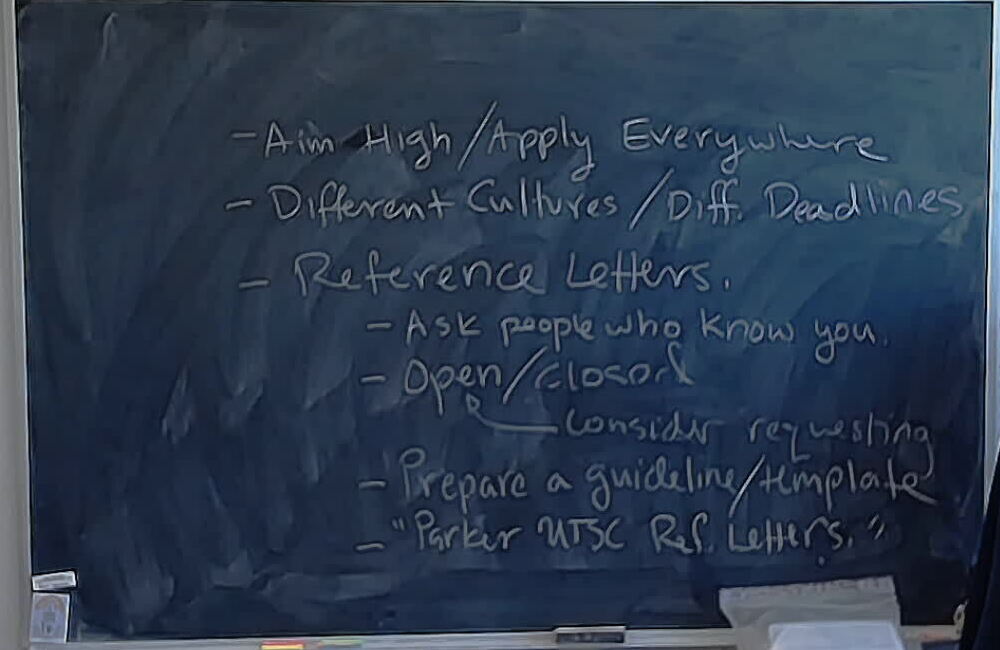 - Aim High/Apply Everywhere
- Different Cultures/Diff. Deadlines
- Reference Letters.
- Ask people who know you.
- Open/closed
consider requesting
- Prepare a guideline/template
- "Parker UTSC Ref. Letters."